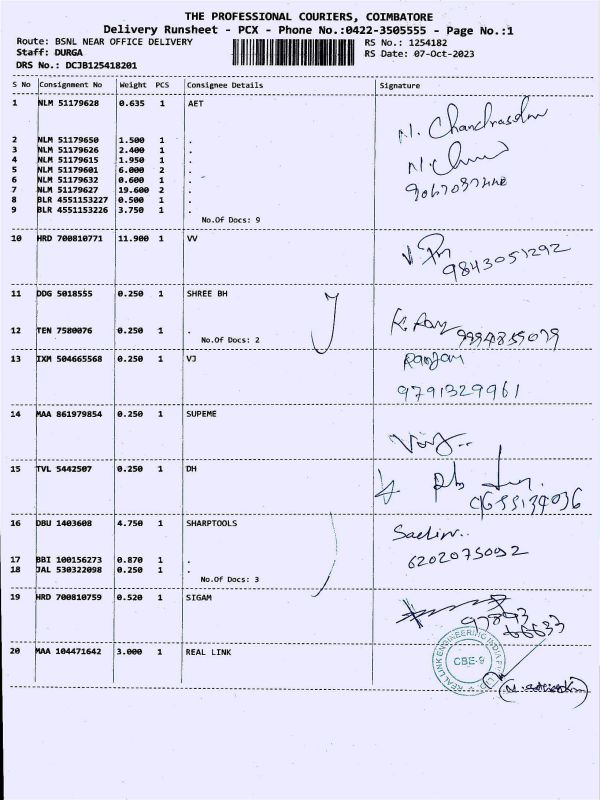 THE PROFESSIONAL COURIERS, COIMBATORE
Delivery Runsheet - PCX - Phone No.:0422-3505555 - Page No.:1
Route: BSNL NEAR OFFICE DELIVERY RS No.: 1254182
Staff: DURGA RS Date: 07-Oct-2023
DRS No.: DCJB125418201
S No Consignment No Weight PCS Consignee Details Signature
1 NLM 51179628 0.635 1 AET
N. Chandrasekar
2 NLM 51179650 1.500 1 .
3 NLM 51179626 2.400 1 .
4 NLM 51179615 1.950 1 .
5 NLM 51179601 6.000 2 .
6 NLM 51179632 0.600 1 .
7 NLM 51179627 19.600 2 .
8 BLR 4551153227 0.500 1 .
9 BLR 4551153226 3.750 1 .
No.Of Docs: 9
10 HRD 700810771 11.900 1 VV
9843051292
11 DDG 5018555 0.250 1 SHREE BH
12 TEN 7580076 0.250 1 .
No.Of Docs: 2
13 IXM 504665568 0.250 1 VJ
9791329961
14 MAA 861979854 0.250 1 SUPEME
15 TVL 5442507 0.250 1 DH
16 DBU 1403608 4.750 1 SHARPTOOLS
6202075092
17 BBI 100156273 0.870 1 .
18 JAL 530322098 0.250 1 .
No.Of Docs: 3
19 HRD 700810759 0.520 1 SIGAM
20 MAA 104471642 3.000 1 REAL LINK
REAL LINK ENGINEERING INDIA
CBE-9